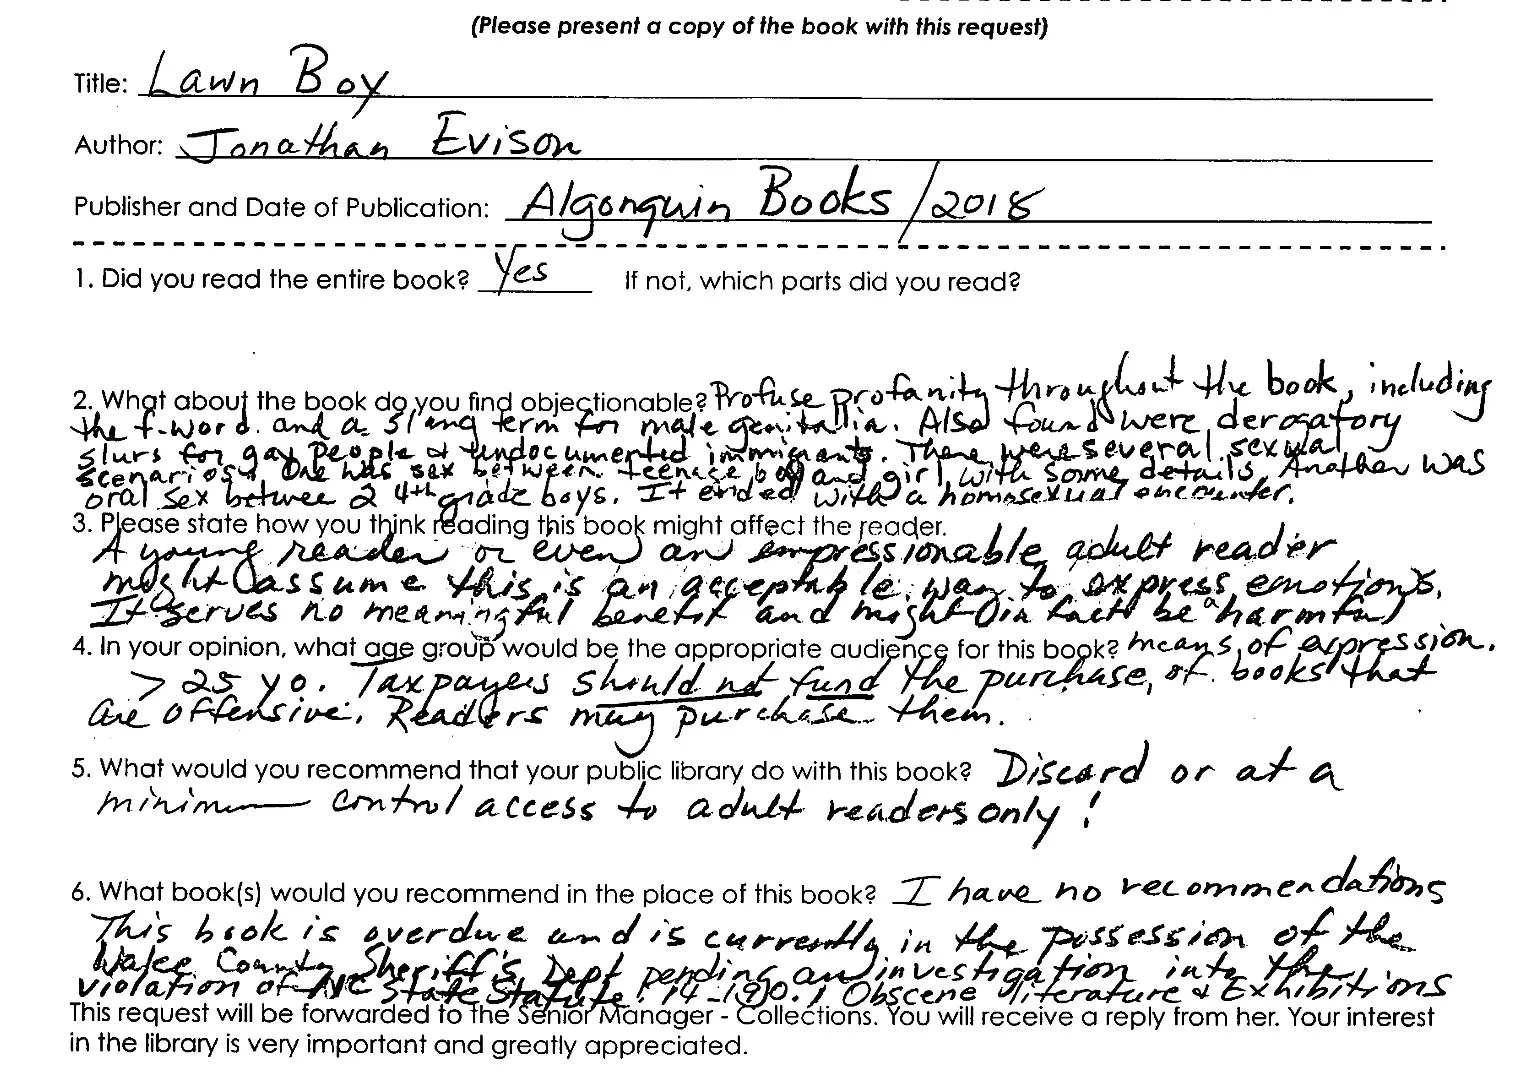 (Please present a copy of the book with this request)
Title: Lawn Boy
Author: Jonathan Evison
Publisher and Date of Publication: Algonquin Books / 2018
1. Did you read the entire book? Yes If not, which parts did you read?
2. What about the book do you find objectionable? Profuse profanity throughout the book, including
the f-word. and a slang term for male genitalia. Also found were derogatory
slurs for gay people & undocumented immigrants. There were several sexual
scenarios. One was sex between teenage boy and girl with some details, Another was
oral sex betwee 2 4th grade boys. It ended with a homosexual encounter.
3. Please state how you think reading this book might affect the reader.
A young reader or even an empressionable adult reader
might assume this is an acceptable way to express emotions.
It serves no meaningful benefit and might in fact be a harmful
4. In your opinion, what age group would be the appropriate audience for this book? means of expression.
> 25 yo. Taxpayers should not fund the purchase of books that
are offensive. Readers may purchase them.
5. What would you recommend that your public library do with this book? Discard or at a
minimum control access to adult readers only!
6. What book(s) would you recommend in the place of this book? I have no recommendations
This book is overdue and is currently in the possession of the
Wake County Sheriff's Dept pending an investigation into the
violation of NC State Statute 14-190.1 Obscene literature & Exhibitions
This request will be forwarded to the Senior Manager - Collections. You will receive a reply from her. Your interest
in the library is very important and greatly appreciated.